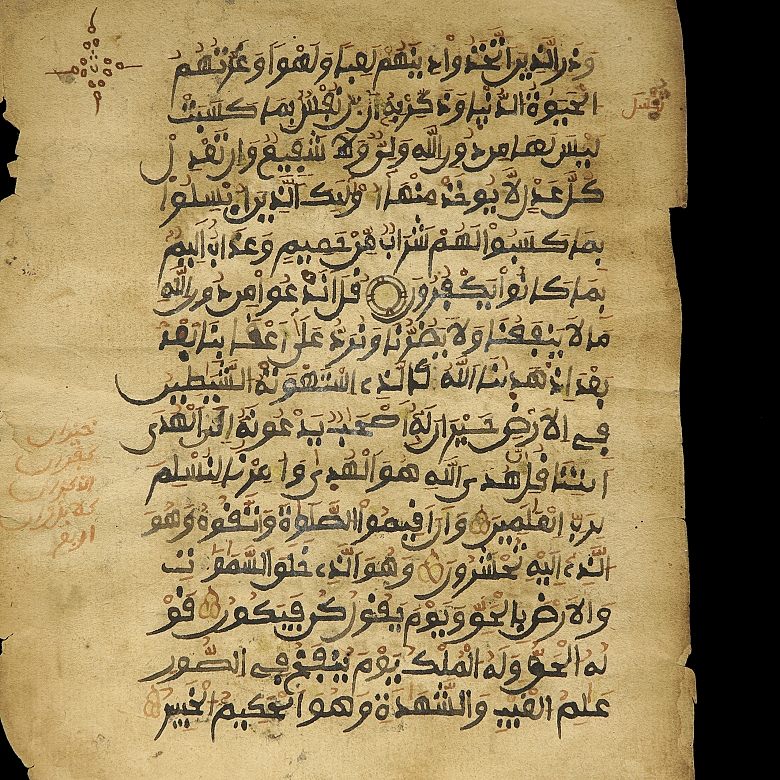 وذر الذين اتخذوا دينهم لعبا ولهوا وغرتهم
الحيوة الدنيا وذكر به أن نفس بما كسبت
تبسل
ليس لها من دون الله ولي ولا شفيع وإن تعدل
كل عدل لا يوخذ منها أولئك الذين ابسلوا
بما كسبوا لهم شراب من حميم وعذاب أليم
بما كانوا يكفرون قل أندعوا من دون الله
ما لا ينفعنا ولا يضرنا ونرد على أعقابنا بعد
بعد إذ هدينا الله كالذي استهوته الشيطين
في الارض حيران له أصحب يدعونه إلى الهدى
ائتنا قل إن هدى الله هو الهدى وأمرنا لنسلم
لرب العلمين وأن أقيموا الصلوة واتقوه وهو
الذي إليه تحشرون وهو الذي خلق السموت
والارض بالحق ويوم يقول كن فيكون قو
له الحق وله الملك يوم ينفخ في الصور
علم الغيب والشهدة وهو الحكيم الخبير